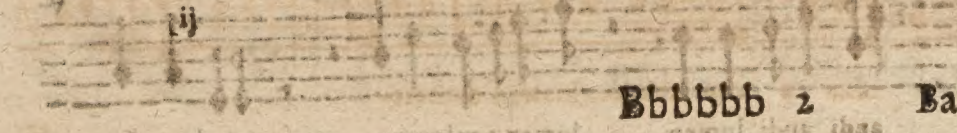 ij
Bbbbbb 2 Ba